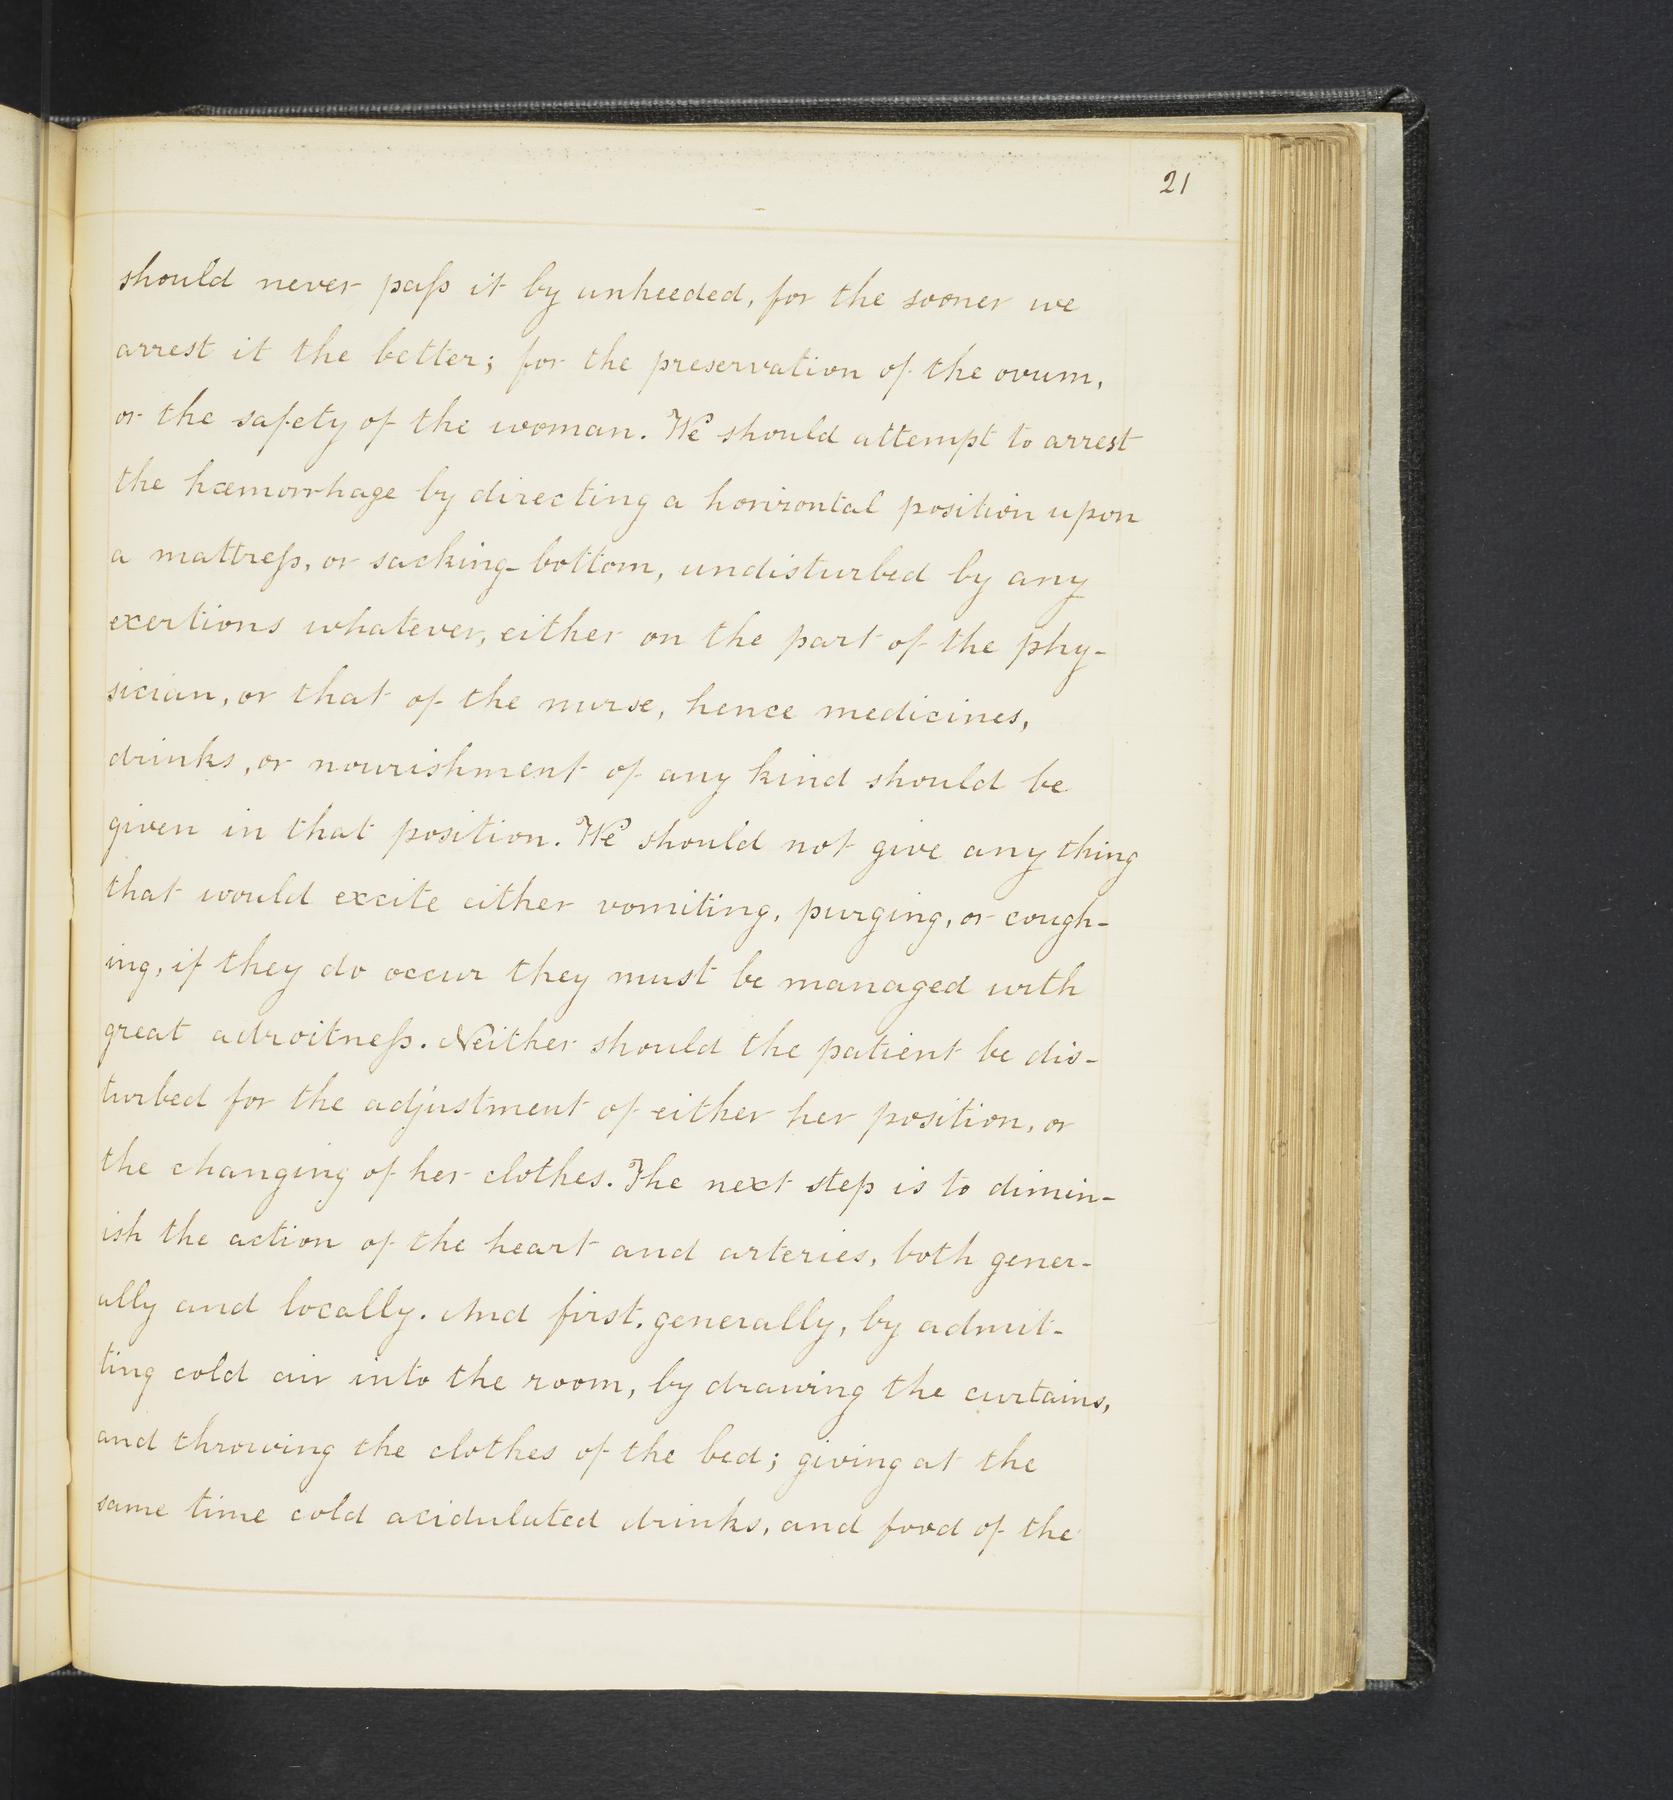 21
should never paſs it by unheeded, for the sooner we
arrest it the better; for the preservation of the ovum,
or the safety of the woman. We should attempt to arrest
the hæmorrhage by directing a horizontal position upon
a mattreſs, or sacking-bottom, undisturbed by any
exertions whatever, either on the part of the phy-
sician, or that of the nurse, hence medicines,
drinks, or nourishment of any kind should be
given in that position. We should not give any thing
that would excite either vomiting, purging, or cough-
ing, if they do occur they must be managed with
great adroitneſs. Neither should the patient be dis-
turbed for the adjustment of either her position, or
the changing of her clothes. The next step is to dimin-
ish the action of the heart and arteries, both gener-
ally and locally. And first, generally, by admit-
ting cold air into the room, by drawing the curtains,
and throwing the clothes of the bed; giving at the
same time cold acidulated drinks, and food of the